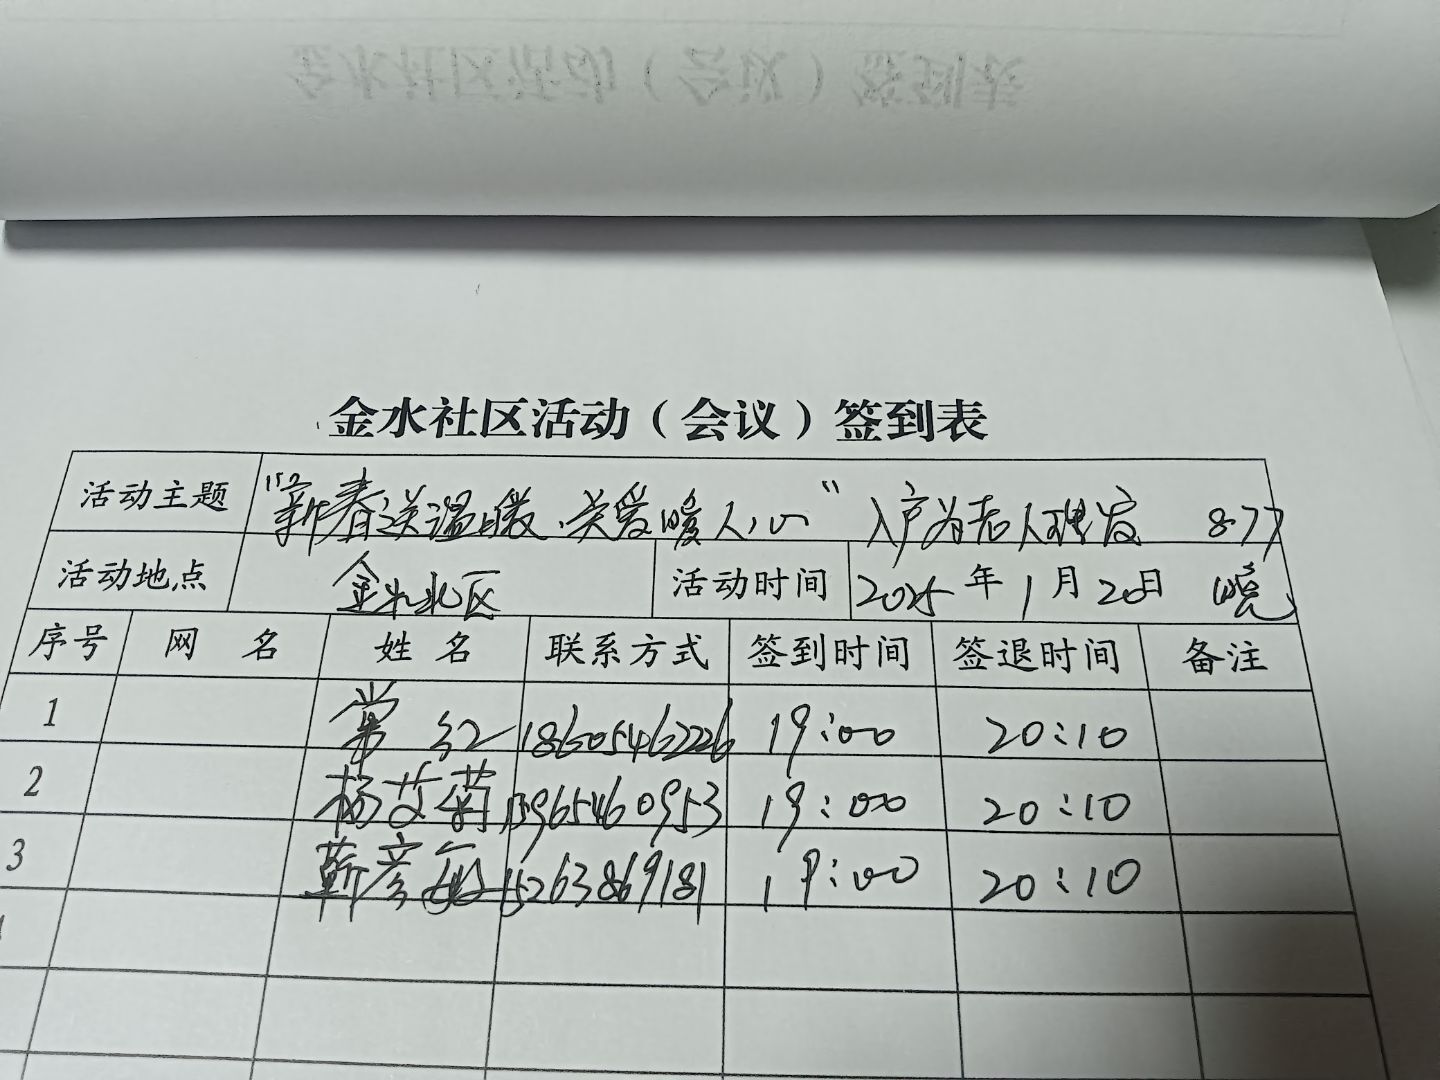 金水社区活动（会议）签到表
活动主题 "新春送温暖、关爱暖人心" 入户为老人理发 877
活动地点 金水北区 活动时间 2025年1月20日 晓
序号 网 名 姓 名 联系方式 签到时间 签退时间 备注
1 常红 18605462226 19:00 20:10
2 杨艾菊 13965460953 19:00 20:10
3 靳彦敏 15263869181 19:00 20:10